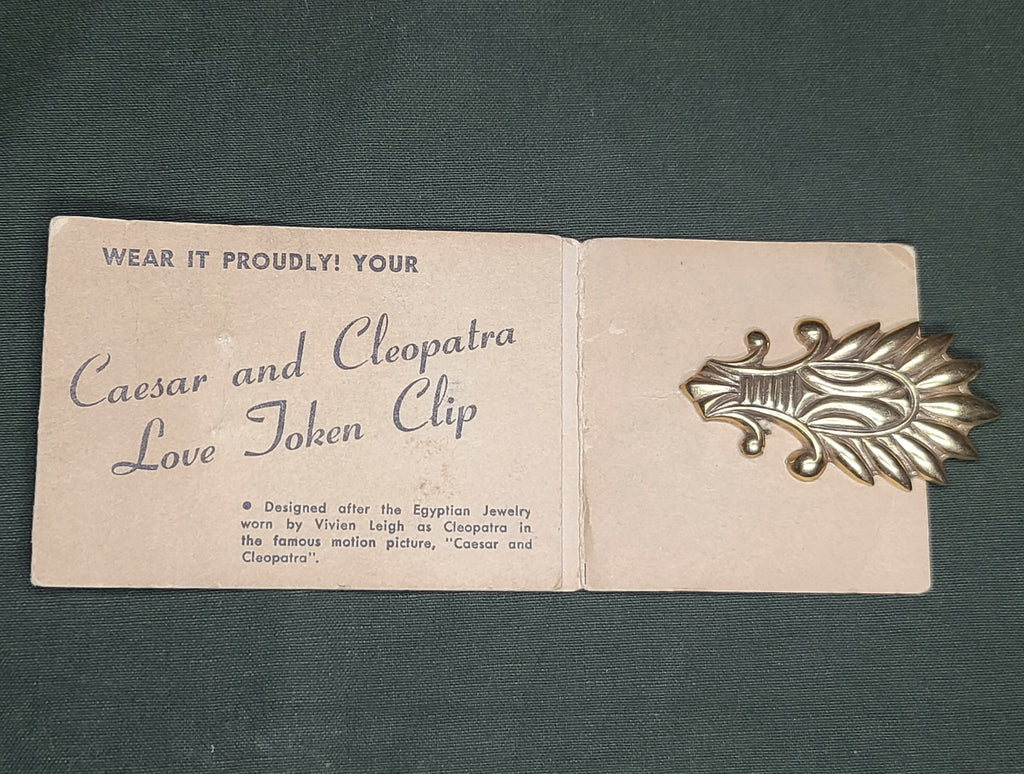 WEAR IT PROUDLY! YOUR
Caesar and Cleopatra
Love Token Clip
• Designed after the Egyptian Jewelry
worn by Vivien Leigh as Cleopatra in
the famous motion picture, "Caesar and
Cleopatra".